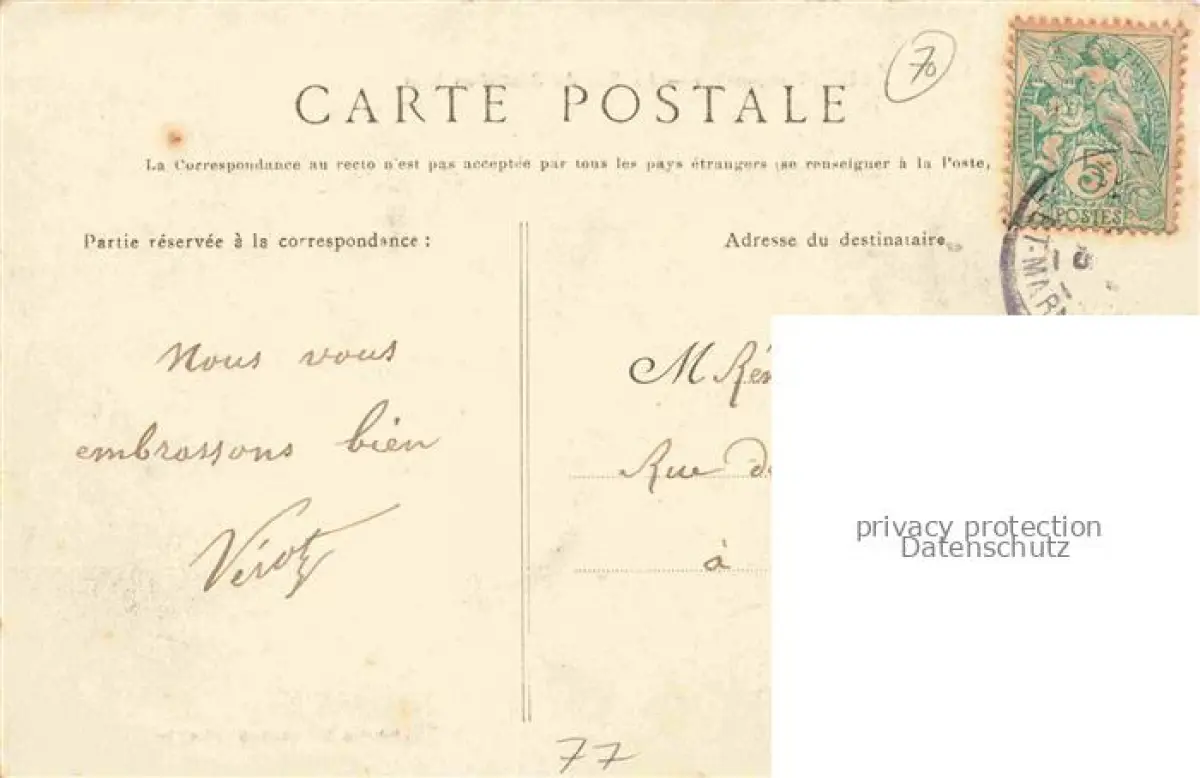 70
CARTE POSTALE
La Correspondance au recto n'est pas acceptée par tous les pays étrangers (se renseigner à la Poste,
POSTES
5
T-MAR
Partie réservée à la correspondance :
Adresse du destinataire
Nous vous
embrassons bien
M Ré
Rue d
à
privacy protection
Datenschutz
77